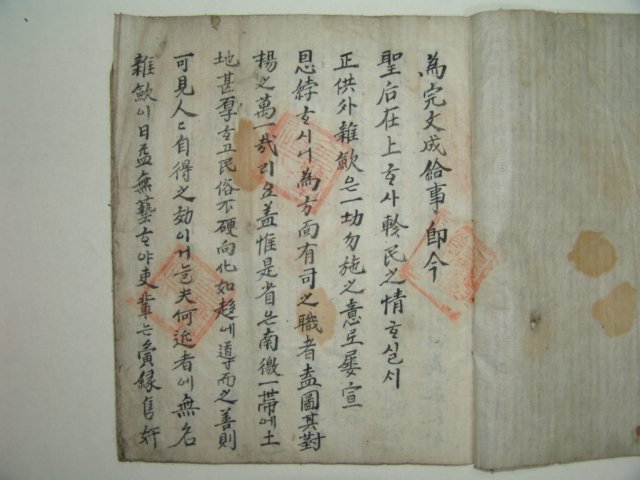 為完文成給事即今
聖后在上ᄒᆞ사軫民之情ᄒᆞ실ᄉᆡ
正供外雜歛은一切勿施之意로屢宣
恩綍ᄒᆞ시니為方面有司之職者盍圖其對
揚之萬一哉리오盖惟是省은南徼一帶에土
地甚厚ᄒᆞ고民俗不硬向化如趍에導而之善則
可見人人自得之効이거늘夫何近者에無名
雜歛이日益無藝ᄒᆞ야吏輩는夤緣售奸